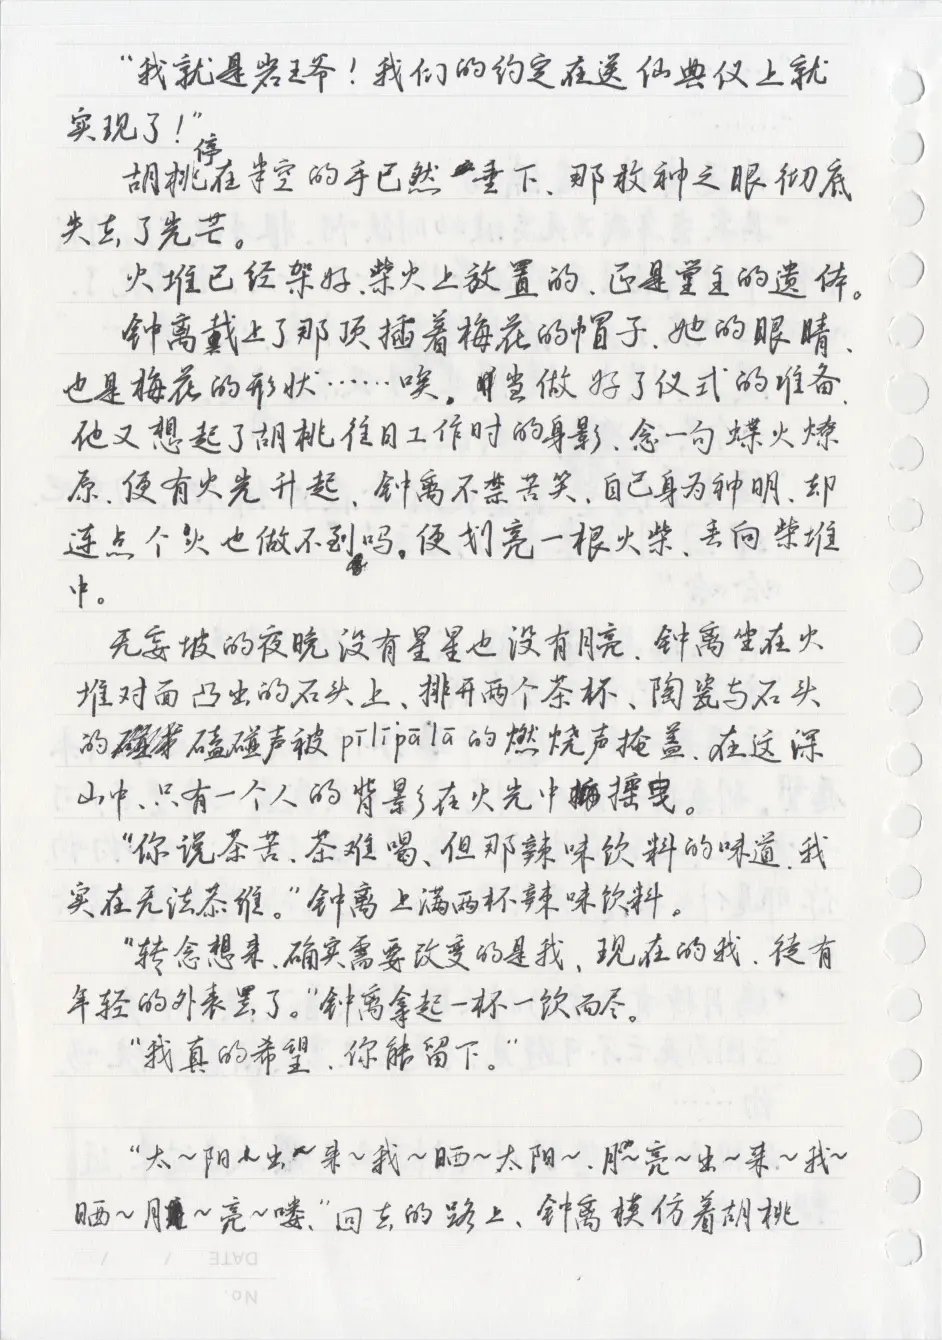 “我就是岩王爷！我们的约定在送仙典仪上就
实现了！”
胡桃停在半空的手已然垂下、那枚神之眼彻底
失去了光芒。
火堆已经架好、柴火上放置的、正是堂主的遗体。
钟离戴上了那顶插着梅花的帽子、她的眼睛、
也是梅花的形状……唉。当做好了仪式的准备、
他又想起了胡桃往日工作时的身影、念一句蝶火燎
原、便有火光升起、钟离不禁苦笑、自己身为神明、却
连点个火也做不到吗。便划亮一根火柴、丢向柴堆
中。
无妄坡的夜晚没有星星也没有月亮、钟离坐在火
堆对面凸出的石头上、排开两个茶杯、陶瓷与石头
的磕碰声被pīlīpālā的燃烧声掩盖、在这深
山中、只有一个人的背影在火光中摇曳。
“你说茶苦、茶难喝、但那辣味饮料的味道、我
实在无法恭维。”钟离上满两杯辣味饮料。
“转念想来、确实需要改变的是我、现在的我、徒有
年轻的外表罢了。”钟离拿起一杯一饮而尽。
“我真的希望、你能留下。”
“太~阳~出~来~我~晒~太阳~、月~亮~出~来~我~
晒~月~亮~喽、”回去的路上、钟离模仿着胡桃
DATE / /
No.